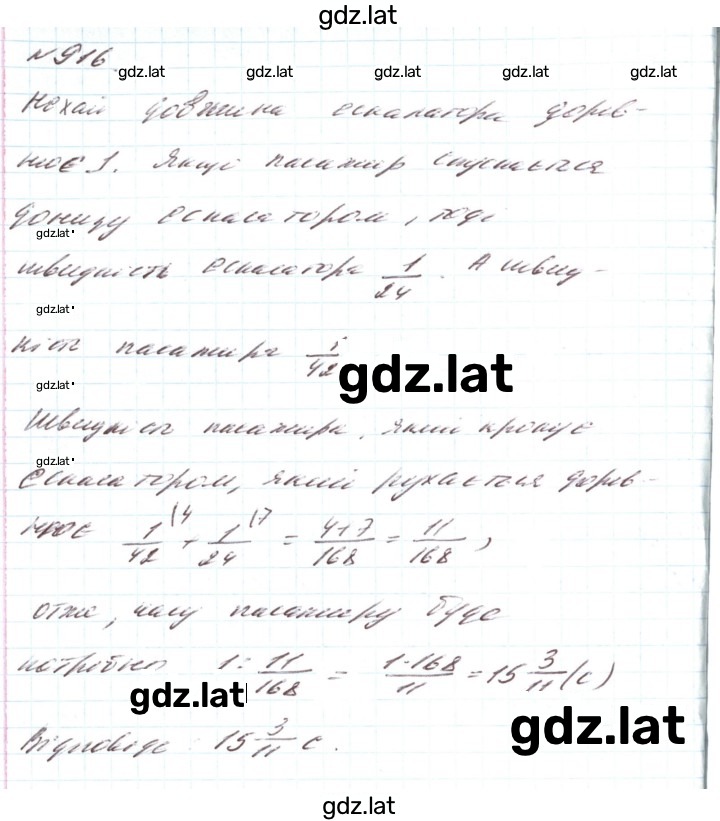 gdz.lat
№916
gdz.lat gdz.lat gdz.lat gdz.lat gdz.lat
Нехай довжина ескалатора дорів-
нює 1. Якщо пасажир спускається
донизу ескалатором, тоді
gdz.lat
швидкість ескалатора 1/24. А швид-
gdz.lat
кість пасажира 1/42
gdz.lat
gdz.lat
Швидкість пасажира, який крокує
gdz.lat
ескалатором, який рухається дорів-
нює 1/42 |4 + 1/24 |7 = 4+7/168 = 11/168,
отже, часу пасажиру буде
потрібно 1 : 11/168 = 1·168/11 = 15 3/11 (с)
gdz.lat
gdz.lat
Відповідь: 15 3/11 с.
gdz.lat